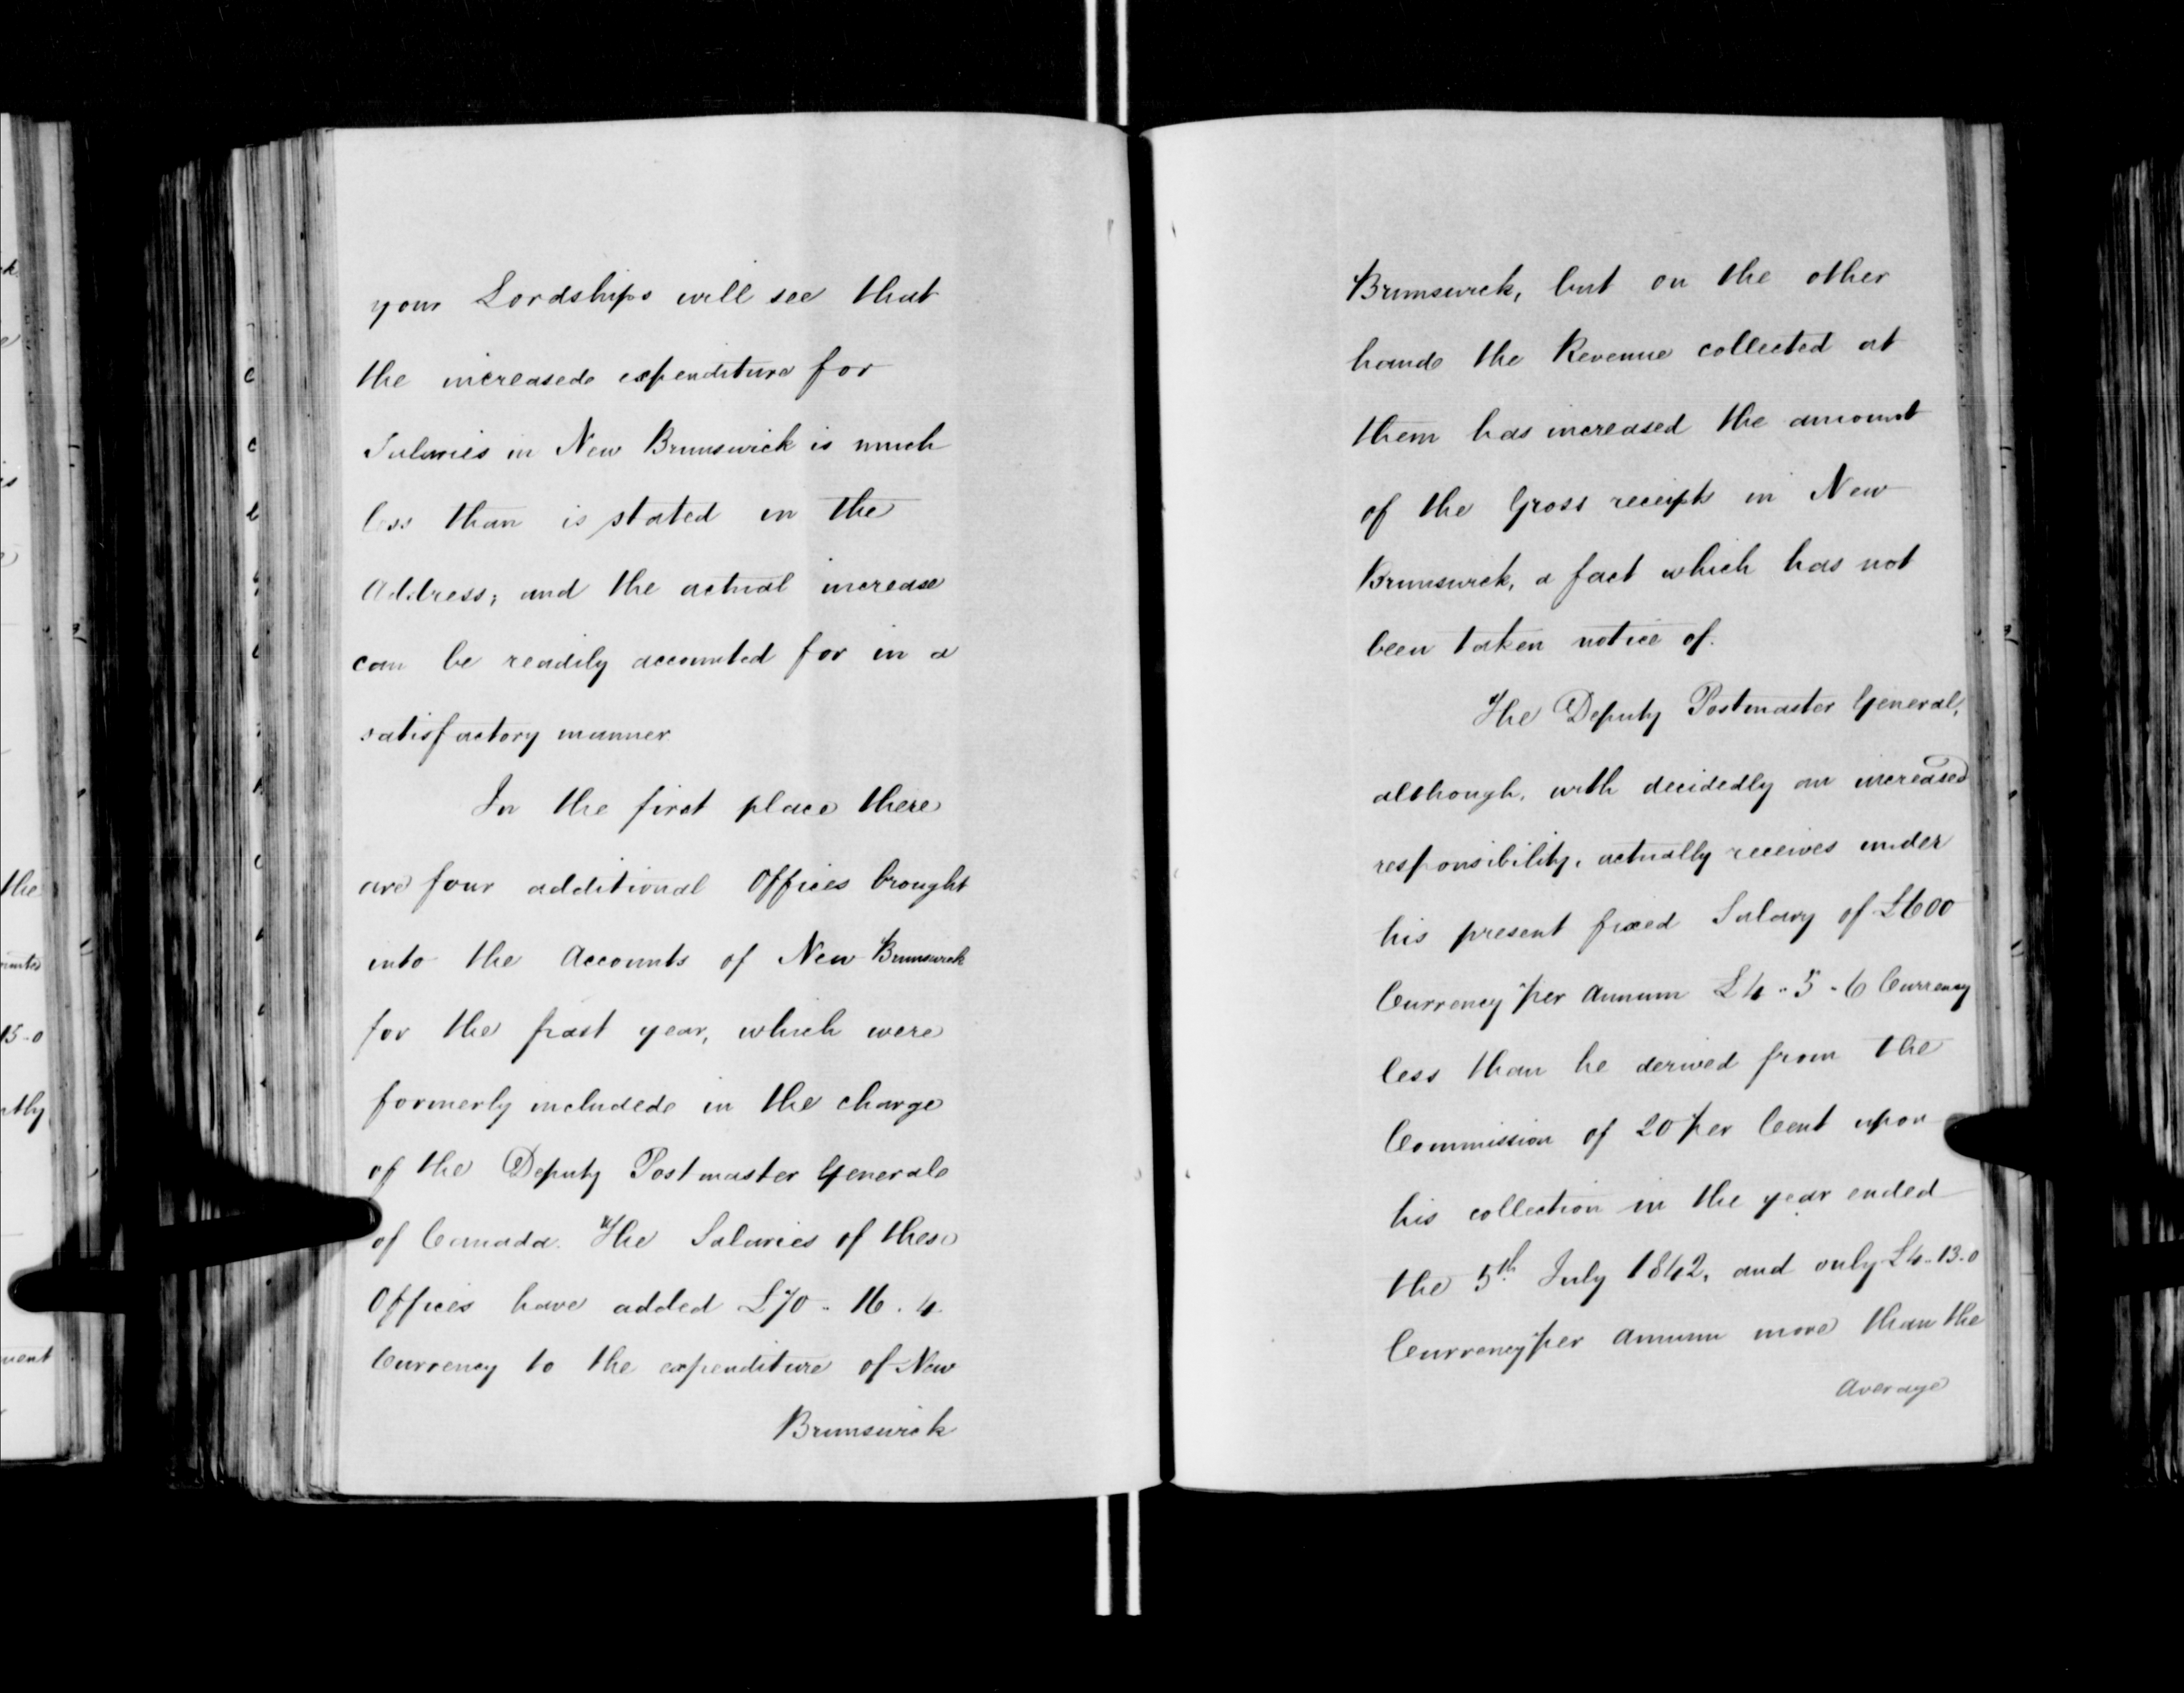 your Lordships will see that
the increased expenditure for
Salaries in New Brunswick is much
less than is stated in the
Address; and the actual increase
can be readily accounted for in a
satisfactory manner
In the first place there
are four additional Offices brought
into the Accounts of New Brunswick
for the past year, which were
formerly included in the charge
of the Deputy Postmaster General
of Canada. The Salaries of these
Offices have added £70 - 16 . 4
Currency to the expenditure of New
Brunswick
Brunswick, but on the other
hand the Revenue collected at
them has increased the amount
of the Gross receipts in New
Brunswick, a fact which has not
been taken notice of.
The Deputy Postmaster General,
although, with decidedly an increased
responsibility, actually receives under
his present fixed Salary of £600
Currency per Annum £4 - 5 - 6 Currency
less than he derived from the
Commission of 20 per Cent upon
his collection in the year ended
the 5th July 1842, and only £4 - 13 - 0
Currency per Annum more than the
Average